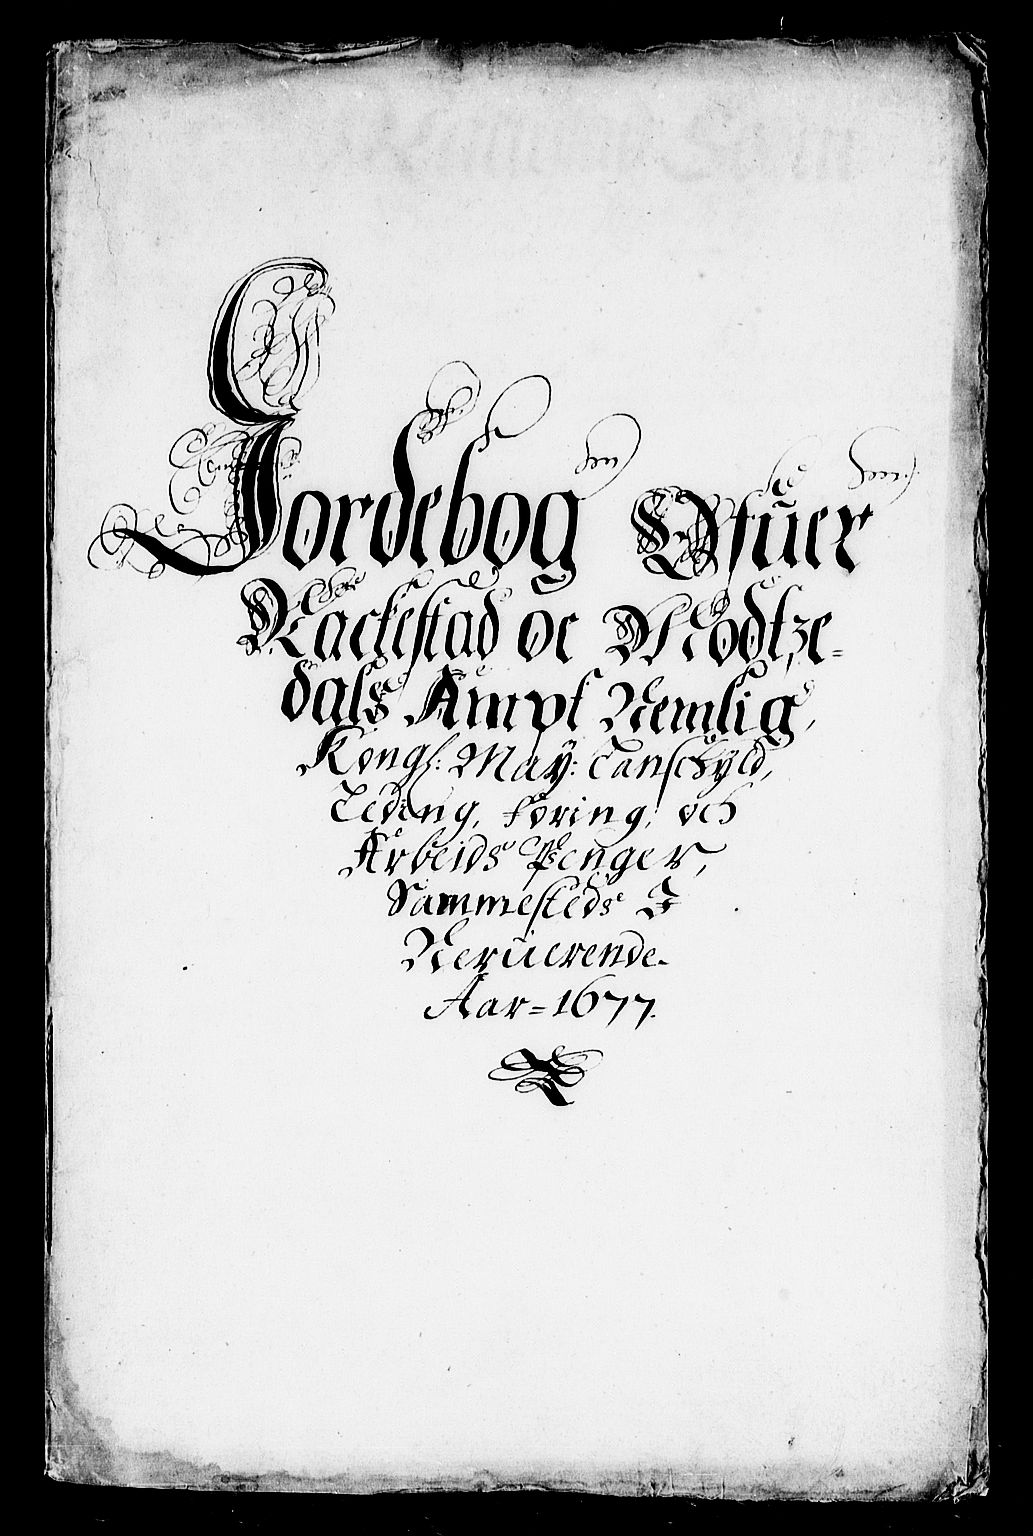 Jordebog Ofuer
Rackestad oc Modtze-
dals Ampt Nemlig,
Kongl: May: Lanschyld,
Leding, Foring, och
Arbeids Penger,
Sammesteds I
Neruerende
Aar = 1677.